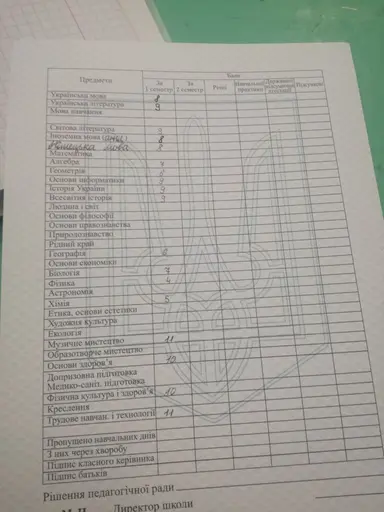 Предмети
Бали
За І семестр
За 2 семестр
Річні
Навчальної практики
Державної підсумкової атестації
Підсумкові
Українська мова 8
Українська література 9
Мова навчання
Світова література
Іноземна мова (англ)
Німецька мова
Математика
Алгебра
Геометрія
Основи інформатики
Історія України
Всесвітня історія
Людина і світ
Основи філософії
Основи правознавства
Природознавство
Рідний край
Географія 6
Основи економіки
Біологія 7
Фізика 4
Астрономія
Хімія 5
Етика, основи естетики
Художня культура
Екологія
Музичне мистецтво 11
Образотворче мистецтво
Основи здоров'я 10
Допризовна підготовка
Медико-саніт. підготовка
Фізична культура і здоров'я 10
Креслення
Трудове навчан. і технології 11
Пропущено навчальних днів
З них через хворобу
Підпис класного керівника
Підпис батьків
Рішення педагогічної ради
М.П. Директор школи